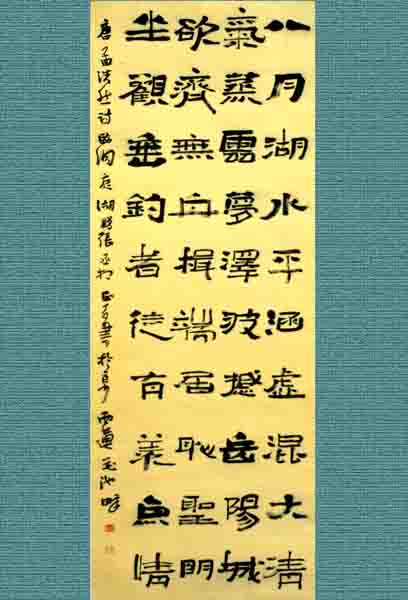 八月湖水平涵虛混太清
氣蒸雲夢澤波撼岳陽城
欲濟無舟楫端居恥聖明
坐觀垂釣者徒有羨魚情
唐孟浩然詩臨洞庭湖贈張丞相